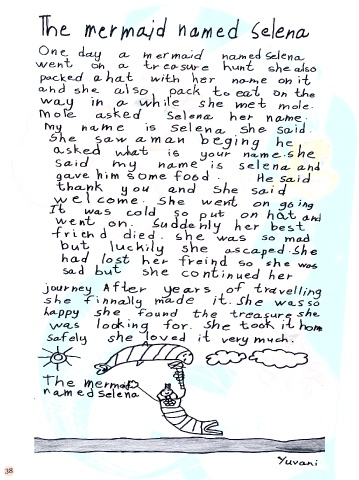 The mermaid named Selena
One day a mermaid named Selena
went on a treasure hunt she also
packed a hat with her name on it
and she also pack to eat on the
way in a while she met mole.
Mole asked Selena her name.
My name is Selena she said.
She saw a man beging he
asked what is your name. she
said my name is selena and
gave him some food. He said
thank you and she said
welcome. she went on going
It was cold so put on hat and
went on. Suddenly her best
friend died. she was so mad
but luckily she ascaped. She
had lost her freind so she was
sad but she continued her
journey After years of travelling
she finnally made it. She was so
happy she found the treasure she
was looking for. She took it home
safely she loved it very much.
The mermaid
named Selena
Yuvani
38